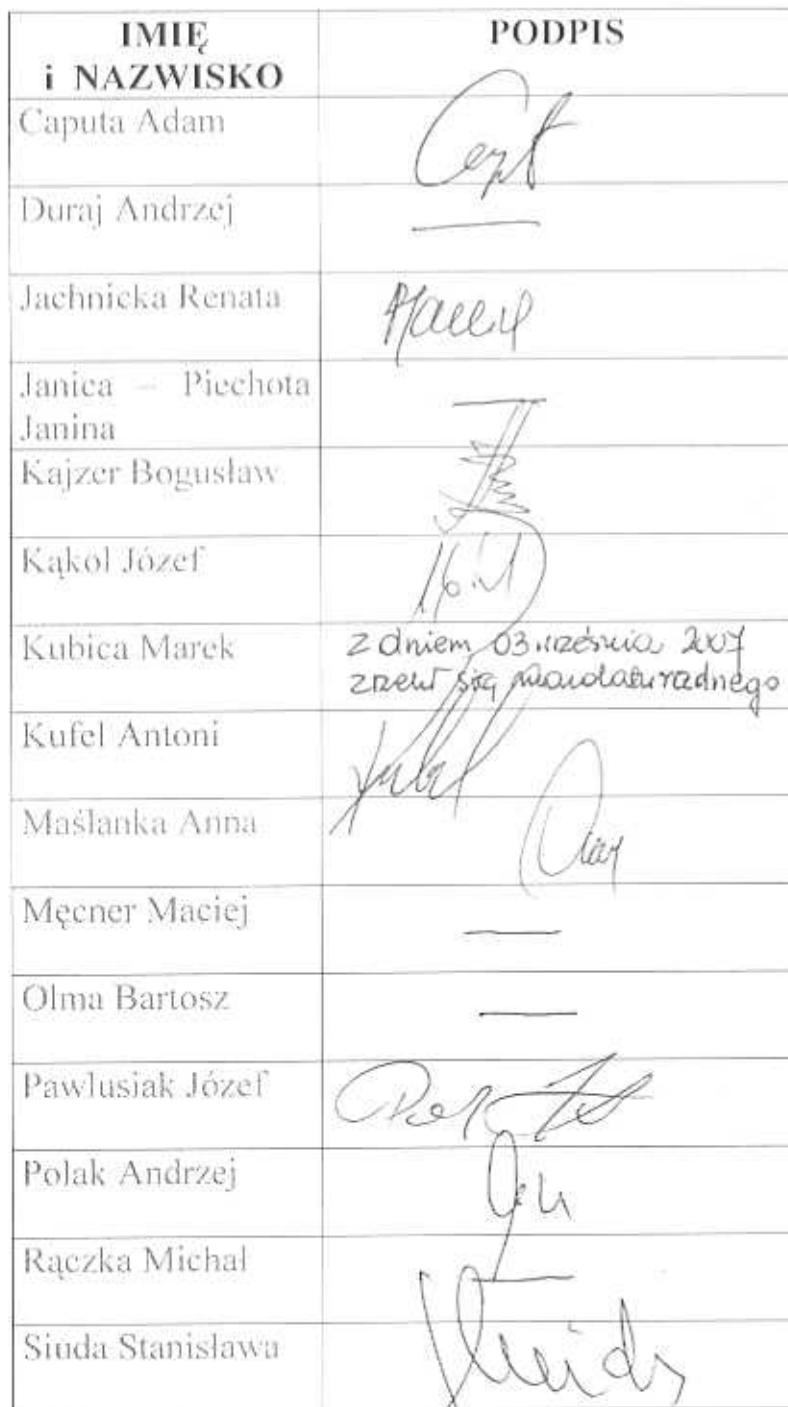 IMIĘ
i NAZWISKO
PODPIS
Caputa Adam
Duraj Andrzej
Jachnicka Renata
Janica – Piechota
Janina
Kajzer Bogusław
Kąkol Józef
Kubica Marek
z dniem 03 września 2007
zrzekł się mandatu radnego
Kufel Antoni
Maślanka Anna
Męcner Maciej
Olma Bartosz
Pawlusiak Józef
Polak Andrzej
Rączka Michał
Siuda Stanisława